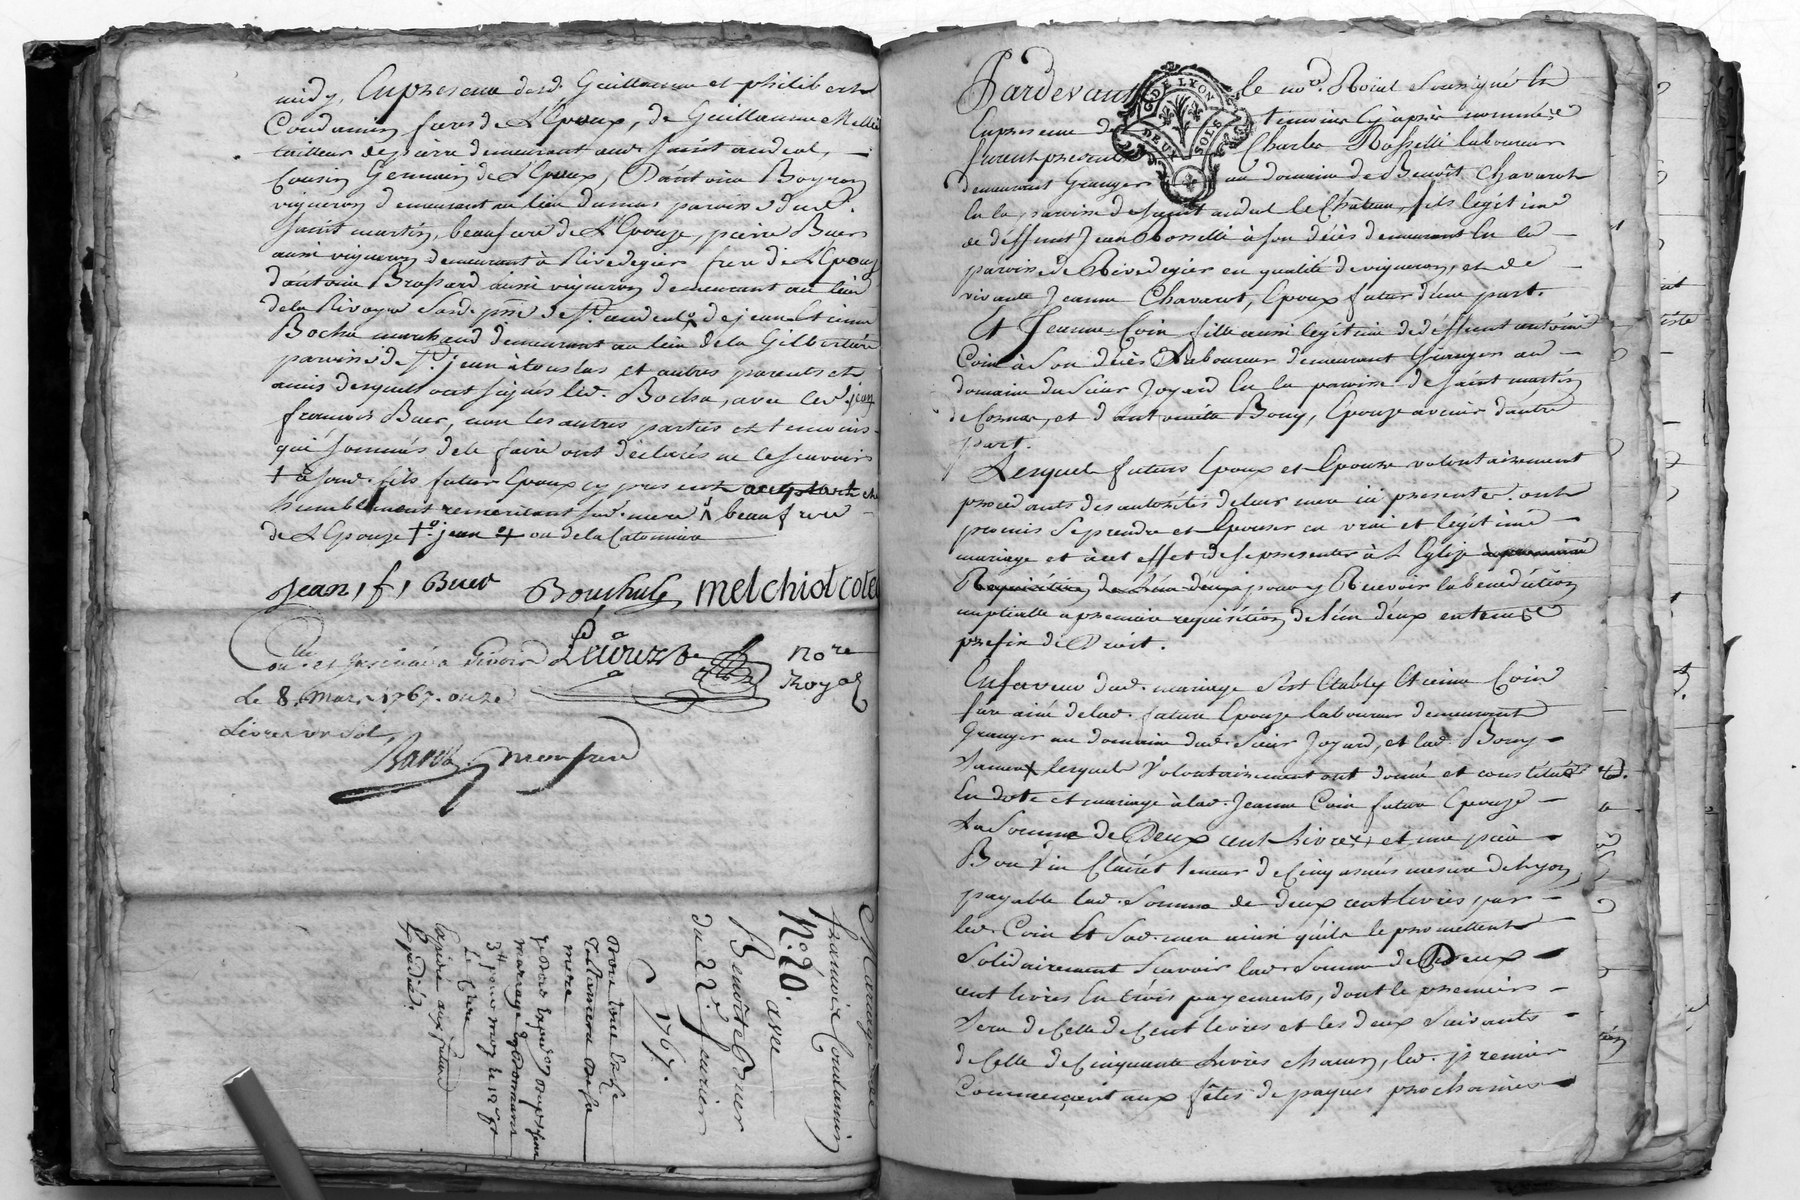 midy, En presence desd. Guillaume et philibert
Coudamin freres de L'Epoux, de Guillaume
tailleur de pierre demeurant aud. saint andeol,
Cousin Germain de L'Epoux, D'antoine Boyron
vigneron demeurant au lieu dumas paroisse dud.
saint martin, beaufrere de L'Epouze, pierre Buer
aussi vigneron demeurant à Rivedegier frere de L'Epouze
d'antoine Brossard aussi vigneron demeurant au lieu
de la Rivoyre Susd. psse de st. andeol, de jean Etienne
marchand demeurant au lieu de la Gilbertiere
paroisse de St. jean à touslas et autres parents et
amis desquels ont signés led. avec led. jean
francois Buer, non les autres parties et temoins
qui sommés de le faire ont déclarés ne le scavoir
+ à sond. fils futur Epoux cy present acceptant et
humblement remerciant sad. mere beaufrere
de L'Epouze + jean + ou de la
jean, f, Buer melchiol cote
nore
Royal
Con.lle et Insinué a Givors
Le 8. Mars 1767. onze
Livres un sol
Mariage de
francoise Coudamin
N.o 20. avec
Benoite Buer
du 22.e fevrier
1767.
mere
mariage
3.e pour moy le
Expedié aux futurs
Expedié.
G. DE LYON
DEUX SOLS
Pardevant le no.re Roial Soussigné En
Enpresence de temoins Cy après nommés
furent presents Charles Rosselli laboureur
demeurant Granger au domaine de Benoit Chavarot
En la paroisse de saint andeol le Château, fils legitime
de deffunt Jean Rosselli à son décès demeurant En la
paroisse de Rivedegier en qualité de vigneron, et de
vivante Jeanne Chavarot, Epoux futur d'une part.
Et Jeanne Coin fille aussi legitime de déffunt antoine
Coin à son décès Laboureur demeurant Granger au
domaine du Sieur Joyard En la paroisse de saint martin
de Cornas, et d'antoinette Bony, Epouze avenir d'autre
part.
Lesquels futurs Epoux et Epouze volontairement
procedants des autorités de leur mere icy presentes ont
promis se prendre et Epouser en vrai et legitime
mariage et à cet effet de se presenter à L'Eglise a premiere
Requisition de L'un deux pour y Recevoir la benediction
nuptialle a premiere requisition de L'un d'eux en temps
prefix de Droit.
Enfaveur dud. mariage s'est Etably Etienne Coin
frere ainé de lad. future Epouze laboureur demeurant
Granger au domaine dud. Sieur Joyard, et lad. Bony
sa mere lesquels volontairement ont donné et constitué
En dote et mariage à lad. Jeanne Coin future Epouze
La Somme de Deux cent Livres, et une piece
Bon vin Clairet teneur de Cinq asnées mesure de Lyon,
payable lad. Somme de deux cent livres par
led. Coin Et Sad. mere ainsi qu'ils le promettent
Solidairement Scavoir lad. Somme de Deux
cent livres En trois payements, dont le premier
sera de Celle de Cent livres et les deux suivants
de Celle de Cinquante Livres chacun, led. premier
Commençant aux fêtes de paques prochaines